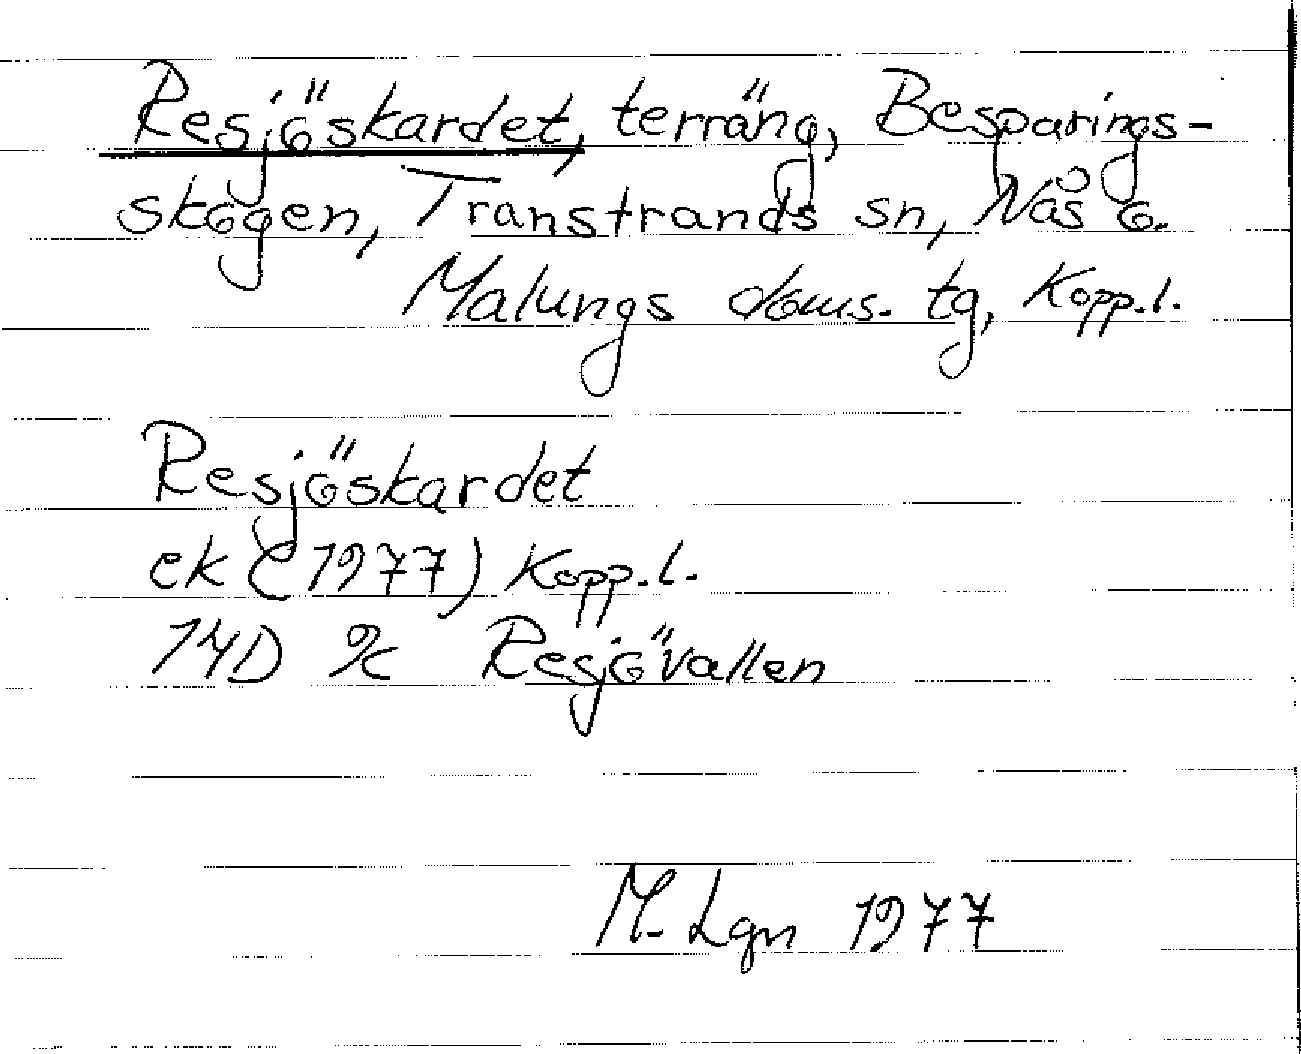 Resjöskardet, terräng, Besparings-
skogen, Transtrands sn, Nås o.
Malungs doms. tg, Kopp.l.
Resjöskardet
ek (1977) Kopp.l.
14D 9c Resjövallen
M. Lgn 1977